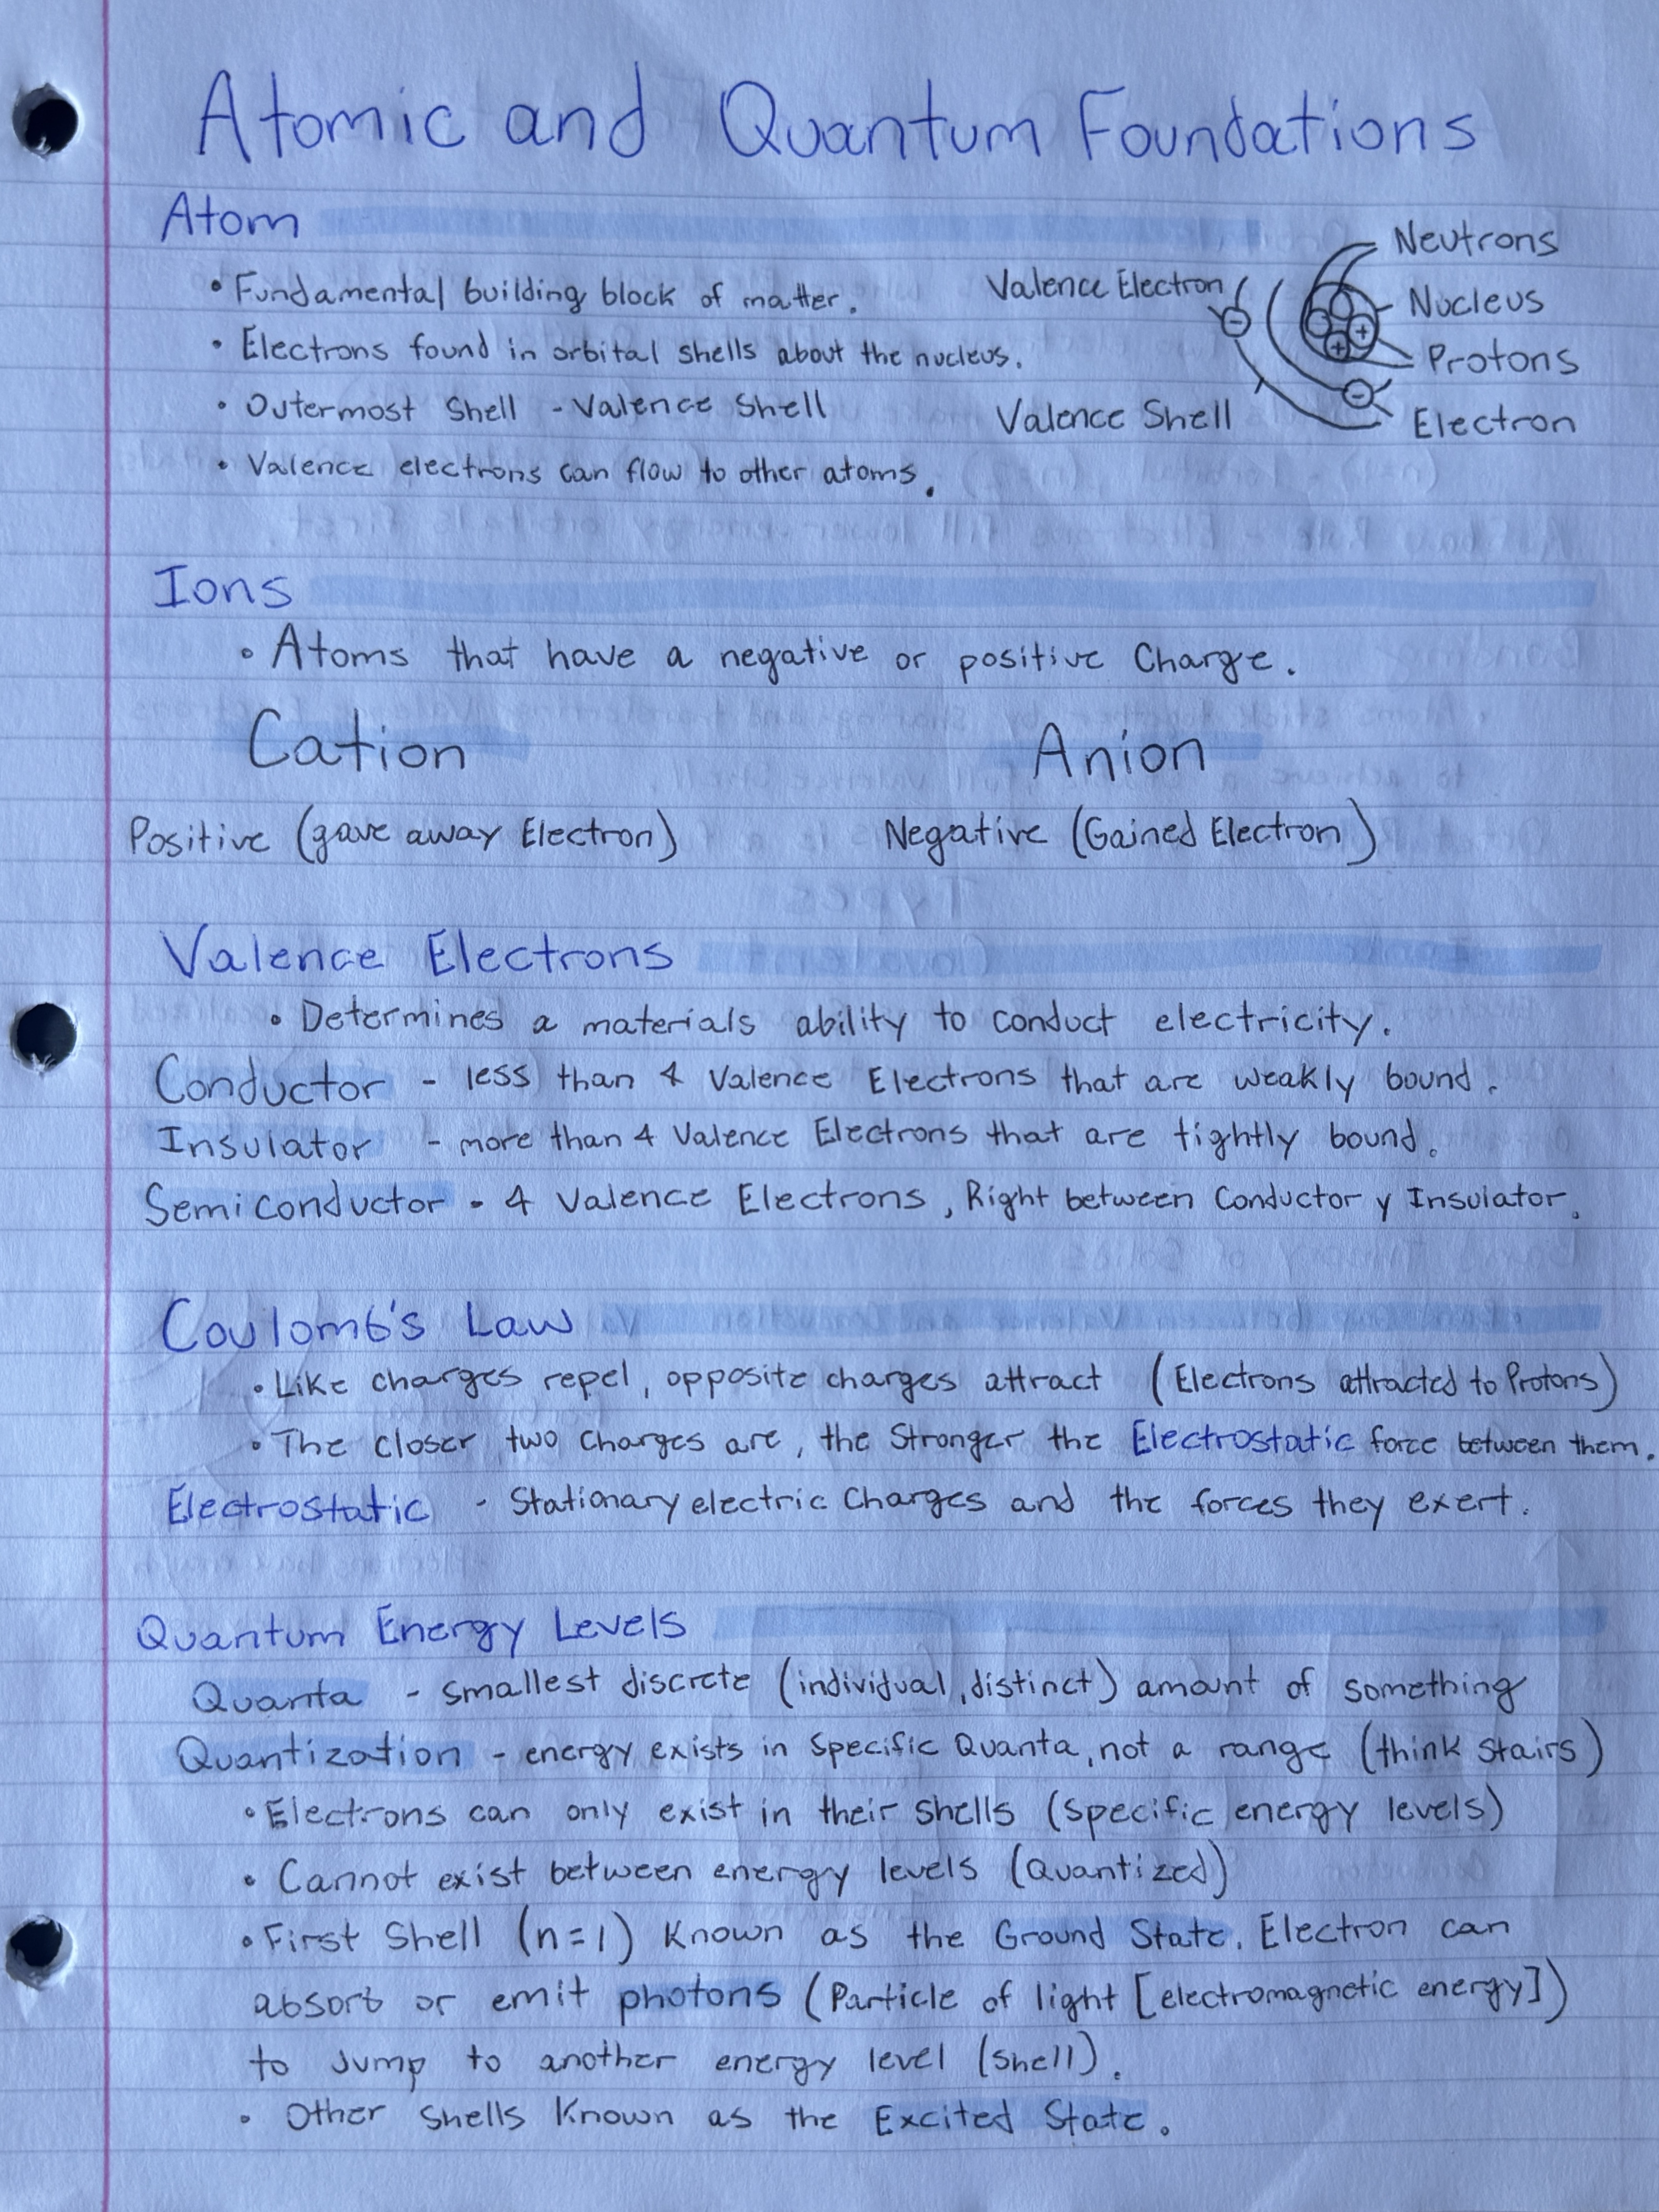 Atomic and Quantum Foundations
Atom
• Fundamental building block of matter.
• Electrons found in orbital shells about the nucleus.
• Outermost Shell - Valence Shell
• Valence electrons can flow to other atoms.
Neutrons
Valence Electron
Nucleus
Protons
Valence Shell
Electron
Ions
• Atoms that have a negative or positive Charge.
Cation
Anion
Positive (gave away Electron)
Negative (Gained Electron)
Valence Electrons
• Determines a materials ability to conduct electricity.
Conductor - less than 4 Valence Electrons that are weakly bound.
Insulator - more than 4 Valence Electrons that are tightly bound.
Semiconductor - 4 Valence Electrons, Right between Conductor y Insulator.
Coulomb's Law
• Like charges repel, opposite charges attract (Electrons attracted to Protons)
• The closer two charges are, the Stronger the Electrostatic force between them.
Electrostatic - Stationary electric Charges and the forces they exert.
Quantum Energy Levels
Quanta - smallest discrete (individual, distinct) amount of something
Quantization - energy exists in Specific Quanta, not a range (think stairs)
• Electrons can only exist in their shells (specific energy levels)
• Cannot exist between energy levels (Quantized)
• First Shell (n=1) Known as the Ground State. Electron can
absorb or emit photons (Particle of light [electromagnetic energy])
to Jump to another energy level (shell).
• Other Shells Known as the Excited State.